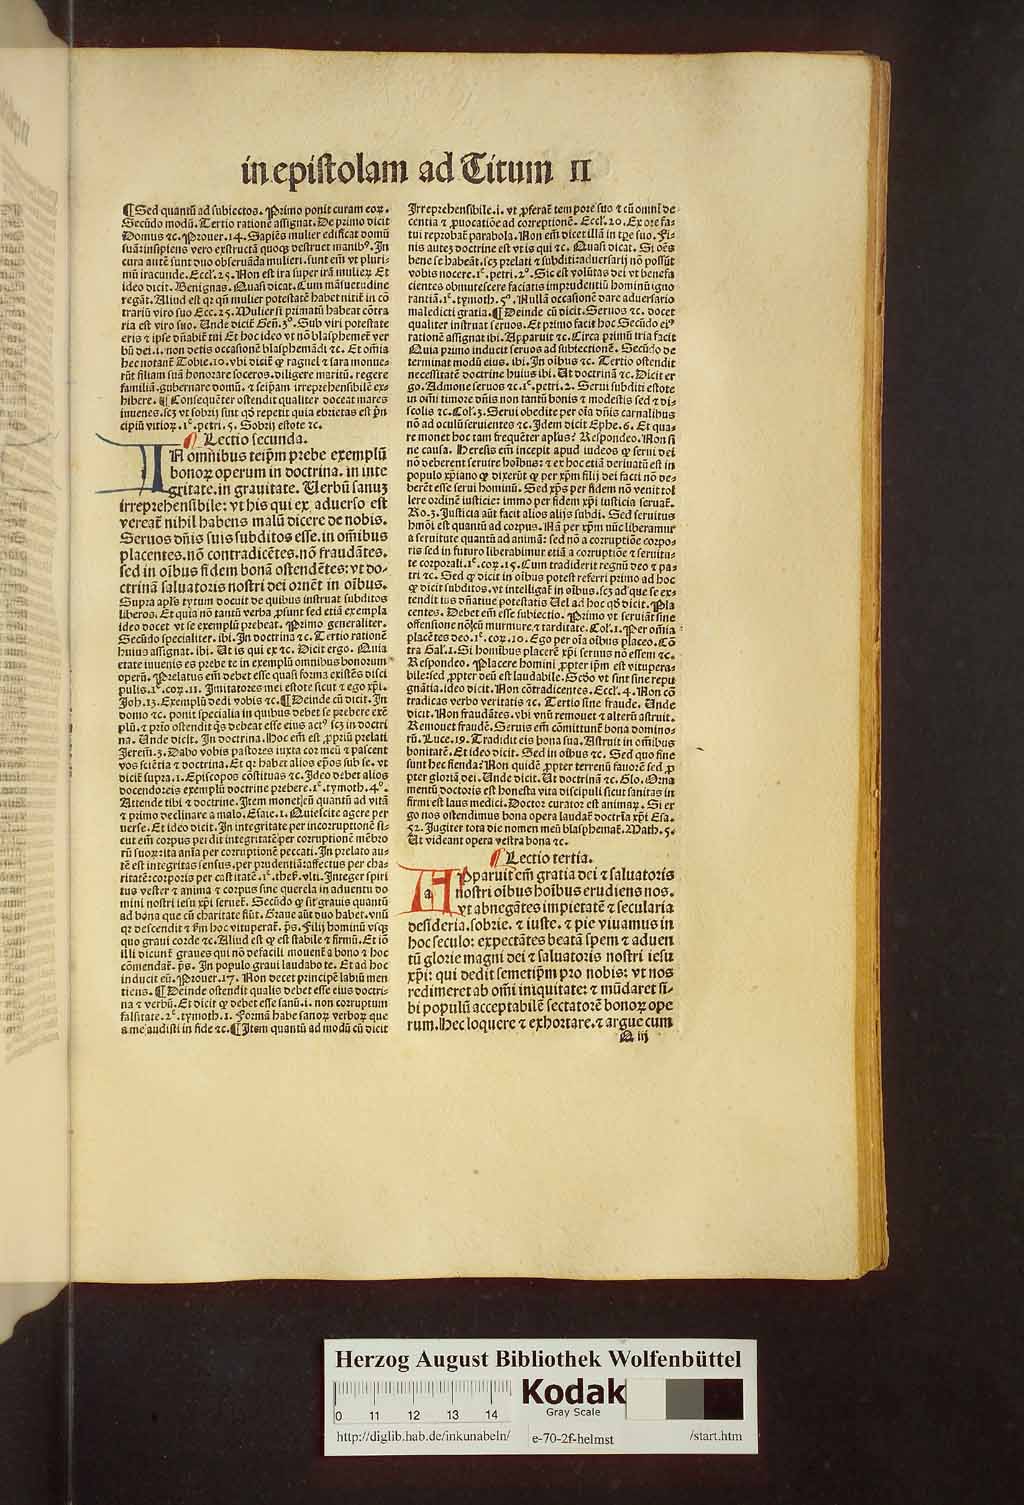 in epistolam ad Titum II
¶ Sed quantũ ad subiectos. Primo ponit curam eoꝝ.
Secũdo modũ. Tertio rationẽ assignat. De primo dicit
Domus ⁊c. Prouer. 14. Sapiẽs mulier edificat domũ
suã: insipiens vero exstructã quoqꝫ destruet manibꝰ. In
cura autẽ sunt duo obseruãda mulieri. sunt em̃ vt pluri-
mũ iracunde. Eccl̃. 25. Non est ira super irã mulieꝝ Et
ideo dicit. Benignas. Quasi dicat. Cum mãsuetudine
regãt. Aliud est qꝛ qñ mulier potestatẽ habet nitit̃ in cõ
trariũ viro suo Ecc. 25. Mulier si primatũ habeat cõtra
ria est viro suo. Unde dicit̃ Geñ. 3ͦ. Sub viri potestate
eris ⁊ ipse dñabit̃ tui Et hoc ideo vt nõ blasphemet̃ ver
bũ dei. i. non detis occasionẽ blasphemãdi ⁊c. Et om̃ia
hec notant̃ Tobie. 10. vbi dicit̃ ꝙ raguel ⁊ sara monue-
rũt filiam suã honorare soceros. diligere maritũ. regere
familiã. gubernare domũ. ⁊ seip̃am irreprehensibilẽ ex-
hibere. ¶ Consequẽter ostendit qualiter doceat mares
iuuenes. scꝫ vt sobrij sint qd̃ repetit quia ebrietas est p̃n
cipiũ vitioꝝ. 1ͣ. petri. 5. Sobrij estote ⁊c.
¶ Lectio secunda.
IN omnibus teip̃m prebe exemplũ
bonoꝝ operum in doctrina. in inte
gritate. in grauitate. Verbũ sanuꝫ
irreprehensibile: vt his qui ex aduerso est
vereat̃ nihil habens malũ dicere de nobis.
Seruos dñis suis subditos esse. in om̃ibus
placentes. nõ contradicẽtes. nõ fraudãtes.
sed in oĩbus fidem bonã ostendẽtes: vt do-
ctrinã saluatoris nostri dei ornẽt in oĩbus.
Supra apl̃s tytum docuit de quibus instruat subditos
liberos. Et quia nõ tantũ verba ꝓsunt sed etiã exempla
ideo docet vt se exemplũ prebeat. Primo generaliter.
Secũdo specialiter. ibi. In doctrina ⁊c. Tertio rationẽ
huius assignat. ibi. Ut is qui ex ⁊c. Dicit ergo. Quia
etate iuuenis es prebe te in exemplũ omnibus bonorum
operũ. Prelatus em̃ debet esse quasi forma existẽs disci
pulis. 1ͣ. coꝝ. 11. Imitatores mei estote sicut ⁊ ego xp̃i.
Joh. 13. Exemplũ dedi vobis ⁊c. ¶ Deinde cũ dicit. In
domo ⁊c. ponit specialia in quibus debet se prebere exẽ
plũ. ⁊ prĩo ostendit qͣs debeat esse eius actꝰ scꝫ in doctri
na. Unde dicit. In doctrina. Hoc em̃ est ꝓpriũ prelati
Jerem̃. 3. Dabo vobis pastores iuxta cor meũ ⁊ pascent
vos sciẽtia ⁊ doctrina. Et qꝛ habet alios ep̃os sub se. vt
dicit supra. 1. Episcopos cõstituas ⁊c. Ideo debet alios
docendo eis exemplũ doctrine prebere. 1ͣ. tymoth. 4ͦ.
Attende tibi ⁊ doctrine. Item monet eũ quantũ ad vitã
⁊ primo declinare a malo. Esaie. 1. Quiescite agere per
uerse. Et ideo dicit. In integritate per incorruptionẽ si-
cut em̃ corpus perdit integritatẽ per corruptionẽ mẽbro
rũ suoꝝ: ita aĩa per corruptionẽ peccati. In prelato au-
tẽ est integritas sensus. per prudentiã: affectus per cha-
ritatẽ: corporis per castitatẽ. 1ͣ. thes̃. vlti. Integer spiri
tus vester ⁊ anima ⁊ corpus sine querela in aduentu do
mini nostri iesu xp̃i seruet̃. Secũdo ꝙ sit grauis quantũ
ad bona que cũ charitate fiũt. Graue aũt duo habet. vnũ
qꝛ descendit ⁊ s̃m hoc vituperat̃. p̃s. Filij hominũ vsqꝫ
quo graui corde ⁊c. Aliud est ꝙ est stabile ⁊ firmũ. Et iõ
illi dicunt̃ graues qui nõ defacili mouent̃ a bono ⁊ hoc
cõmendat̃. p̃s. In populo graui laudabo te. Et ad hoc
inducit eũ. Prouer. 17. Non decet principẽ labiũ men
tiens. ¶ Deinde ostendit qualis debet esse eius doctri-
na ⁊ verbũ. Et dicit ꝙ debet esse sanũ. i. non corruptum
falsitate. 2ͣ. tymoth. 1. Formã habe sanoꝝ verboꝝ que
a me audisti in fide ⁊c. ¶ Item quantũ ad modũ cũ dicit
Irreprehensibile. i. vt ꝓferat̃ tempore suo ⁊ cũ omni de
centia ⁊ ꝓuocatiõe ad correptionẽ. Eccl̃. 20. Ex ore fa-
tui reprobat̃ parabola. Non em̃ dicet illã in tp̃e suo. Fi-
nis auteꝫ doctrine est vt is qui ⁊c. Quasi dicat. Si oẽs
bene se habeãt. scꝫ prelati ⁊ subditi: aduersarij nõ possũt
vobis nocere. 1ͣ. petri. 2ͦ. Sic est volũtas dei vt benefa
cientes obmutescere faciatis imprudentiũ hominũ igno
rantiã. 1ͣ. tymoth. 5ͦ. Nullã occasionẽ dare aduersario
maledicti gratia. ¶ Deinde cũ dicit. Seruos ⁊c. docet
qualiter instruat seruos. Et primo facit hoc Secũdo eiꝰ
rationẽ assignat ibi. Apparuit ⁊c. Circa primũ tria facit
Quia primo inducit seruos ad subiectionẽ. Secũdo de
terminat modũ eius. ibi. In oĩbus ⁊c. Tertio ostendit
necessitatẽ doctrine huius ibi. Ut doctrinã ⁊c. Dicit er
go. Admone seruos ⁊c. 1ͣ. petri. 2. Serui subditi estote
in om̃i timore dñis non tantũ bonis ⁊ modestis sed ⁊ di-
scolis ⁊c. Col̃. 3. Serui obedite per oĩa dñis carnalibus
nõ ad oculũ seruientes ⁊c. Idem dicit Ephe. 6. Et qua-
re monet hoc tam frequẽter apl̃us? Respondeo. Non si
ne causa. Heresis em̃ incepit apud iudeos ꝙ serui dei
nõ deberent seruire hoĩbus: ⁊ ex hoc etiã deriuatũ est in
populo xp̃iano ꝙ dixerũt ꝙ per xp̃m filij dei facti nõ de-
berẽt esse serui hominũ. Sed xp̃s per fidem nõ venit tol
lere ordinẽ iusticie: immo per fidem xp̃i iusticia seruat̃.
Ro. 3. Justicia aũt facit alios alijs subdi. Sed seruitus
hmõi est quantũ ad corpus. Nã per xp̃m nũc liberamur
a seruitute quantũ ad animã: sed nõ a corruptiõe corpo-
ris sed in futuro liberabimur etiã a corruptiõe ⁊ seruitu-
te corporali. 1ͣ. coꝝ. 15. Cum tradiderit regnũ deo ⁊ pa-
tri ⁊c. Sed ꝙ dicit in oĩbus potest referri primo ad hoc
ꝙ dicit subditos. vt intelligat̃ in oĩbus. scꝫ ad que se ex-
tendit ius dñatiue potestatis Uel ad hoc qd̃ dicit. Pla
centes. Debet em̃ esse subiectio. Primo vt seruiãt sine
offensione nõ cũ murmure. ⁊ tarditate. Col̃. 1. Per om̃ia
placẽtes deo. 1ͣ. coꝝ. 10. Ego per oĩa oĩbus placeo. Cõ
tra Gal̃. 1. Si homĩbus placerẽ xp̃i seruus nõ essem ⁊c.
Respondeo. Placere homini ꝓpter ip̃m est vitupera-
bile: sed ꝓpter deũ est laudabile. Scd̃o vt sint sine repu
gnãtia. ideo dicit. Non cõtradicentes. Eccl̃. 4. Non cõ
tradicas verbo veritatis ⁊c. Tertio sine fraude. Unde
dicit. Non fraudãtes. vbi vnũ remouet ⁊ alterũ astruit.
Remouet fraudẽ. Seruis em̃ cõmittunt̃ bona domino-
rũ. Luce. 19. Tradidit eis bona sua. Astruit in om̃ibus
bonitatẽ. Et ideo dicit. Sed in oĩbus ⁊c. Sed quo fine
sunt hec fienda? Non quidẽ ꝓpter terrenũ fauorẽ sed ꝓ
pter gloriã dei. Unde dicit. Ut doctrinã ⁊c. Glo. Orna
mentũ doctoris est honesta vita discipuli sicut sanitas in
firmi est laus medici. Doctor curator est animaꝝ. Si er
go nos ostendimus bona opera laudat̃ doctrĩa xp̃i Esa.
52. Jugiter tota die nomen meũ blasphemat̃. Math. 5.
Ut videant opera vestra bona ⁊c.
¶ Lectio tertia.
a
APparuit em̃ gratia dei ⁊ saluatoris
nostri oĩbus hoĩbus erudiens nos.
vt abnegãtes impietatẽ ⁊ secularia
desideria. sobrie. ⁊ iuste. ⁊ pie viuamus in
hoc seculo: expectãtes beatã spem ⁊ aduen
tũ glorie magni dei ⁊ saluatoris nostri iesu
xp̃i: qui dedit semetip̃m pro nobis: vt nos
redimeret ab om̃i iniquitate: ⁊ mũdaret si-
bi populũ acceptabilẽ sectatorẽ bonoꝝ ope
rum. Hec loquere ⁊ exhortare. ⁊ argue cum
N iij
Herzog August Bibliothek Wolfenbüttel
0 11 12 13 14
Kodak
Gray Scale
http://diglib.hab.de/inkunabeln/ e-70-2f-helmst /start.htm